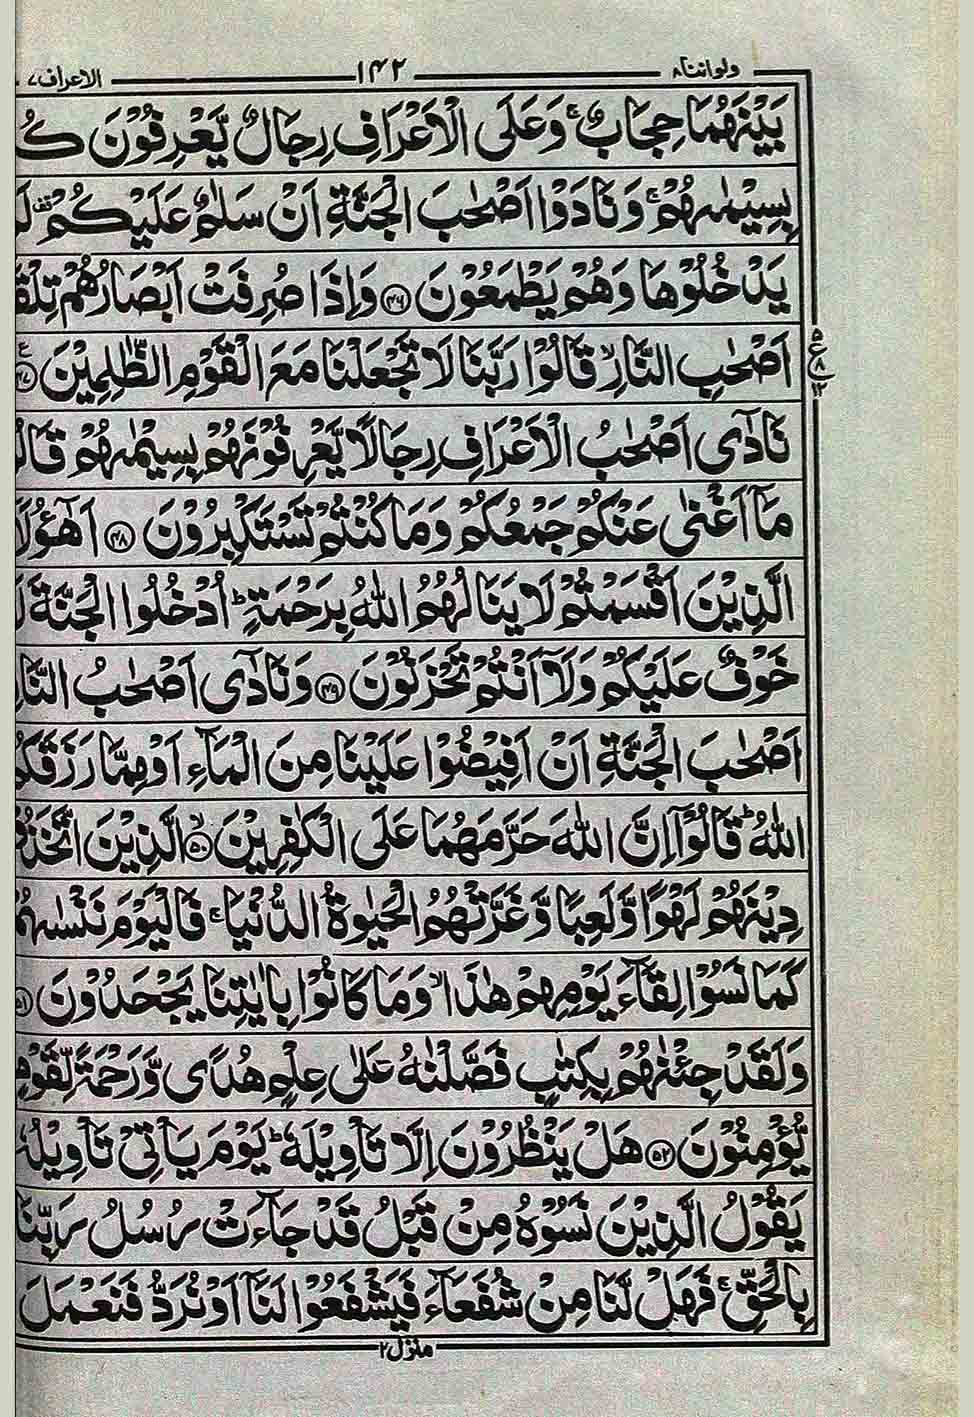 ولواننا ٨ ١٤٢ الاعراف ٧
بَيْنَهُمَا حِجَابٌ ۚ وَعَلَى الْاَعْرَافِ رِجَالٌ يَّعْرِفُوْنَ كُ
بِسِيْمٰىهُمْ ۚ وَنَادَوْا اَصْحٰبَ الْجَنَّةِ اَنْ سَلٰمٌ عَلَيْكُمْ ۟ لَ
يَدْخُلُوْهَا وَهُمْ يَطْمَعُوْنَ ۝٤٦ وَاِذَا صُرِفَتْ اَبْصَارُهُمْ تِلْقَ
اَصْحٰبِ النَّارِ ۙ قَالُوْا رَبَّنَا لَا تَجْعَلْنَا مَعَ الْقَوْمِ الظّٰلِمِيْنَ ۝٤٧
ع ٥ ٨ ١٢
نَادٰۤى اَصْحٰبُ الْاَعْرَافِ رِجَالًا يَّعْرِفُوْنَهُمْ بِسِيْمٰىهُمْ قَالُ
مَاۤ اَغْنٰى عَنْكُمْ جَمْعُكُمْ وَمَا كُنْتُمْ تَسْتَكْبِرُوْنَ ۝٤٨ اَهٰۤؤُلَا
الَّذِيْنَ اَقْسَمْتُمْ لَا يَنَالُهُمُ اللّٰهُ بِرَحْمَةٍ ؕ اُدْخُلُوا الْجَنَّةَ لَ
خَوْفٌ عَلَيْكُمْ وَلَاۤ اَنْتُمْ تَحْزَنُوْنَ ۝٤٩ وَنَادٰۤى اَصْحٰبُ النَّارِ
اَصْحٰبَ الْجَنَّةِ اَنْ اَفِيْضُوْا عَلَيْنَا مِنَ الْمَآءِ اَوْ مِمَّا رَزَقَكُ
اللّٰهُ ؕ قَالُوْۤا اِنَّ اللّٰهَ حَرَّمَهُمَا عَلَى الْكٰفِرِيْنَ ۝٥٠ۙ الَّذِيْنَ اتَّخَذُوْ
دِيْنَهُمْ لَهْوًا وَّلَعِبًا وَّغَرَّتْهُمُ الْحَيٰوةُ الدُّنْيَا ۚ فَالْيَوْمَ نَنْسٰىهُمْ
كَمَا نَسُوْا لِقَآءَ يَوْمِهِمْ هٰذَا ۙ وَمَا كَانُوْا بِاٰيٰتِنَا يَجْحَدُوْنَ ۝٥١
وَلَقَدْ جِئْنٰهُمْ بِكِتٰبٍ فَصَّلْنٰهُ عَلٰى عِلْمٍ هُدًى وَّرَحْمَةً لِّقَوْمٍ
يُّؤْمِنُوْنَ ۝٥٢ هَلْ يَنْظُرُوْنَ اِلَّا تَاْوِيْلَهٗ ؕ يَوْمَ يَاْتِيْ تَاْوِيْلُهٗ
يَقُوْلُ الَّذِيْنَ نَسُوْهُ مِنْ قَبْلُ قَدْ جَآءَتْ رُسُلُ رَبِّنَا
بِالْحَقِّ ۚ فَهَلْ لَّنَا مِنْ شُفَعَآءَ فَيَشْفَعُوْا لَنَاۤ اَوْ نُرَدُّ فَنَعْمَلَ
منزل ٢